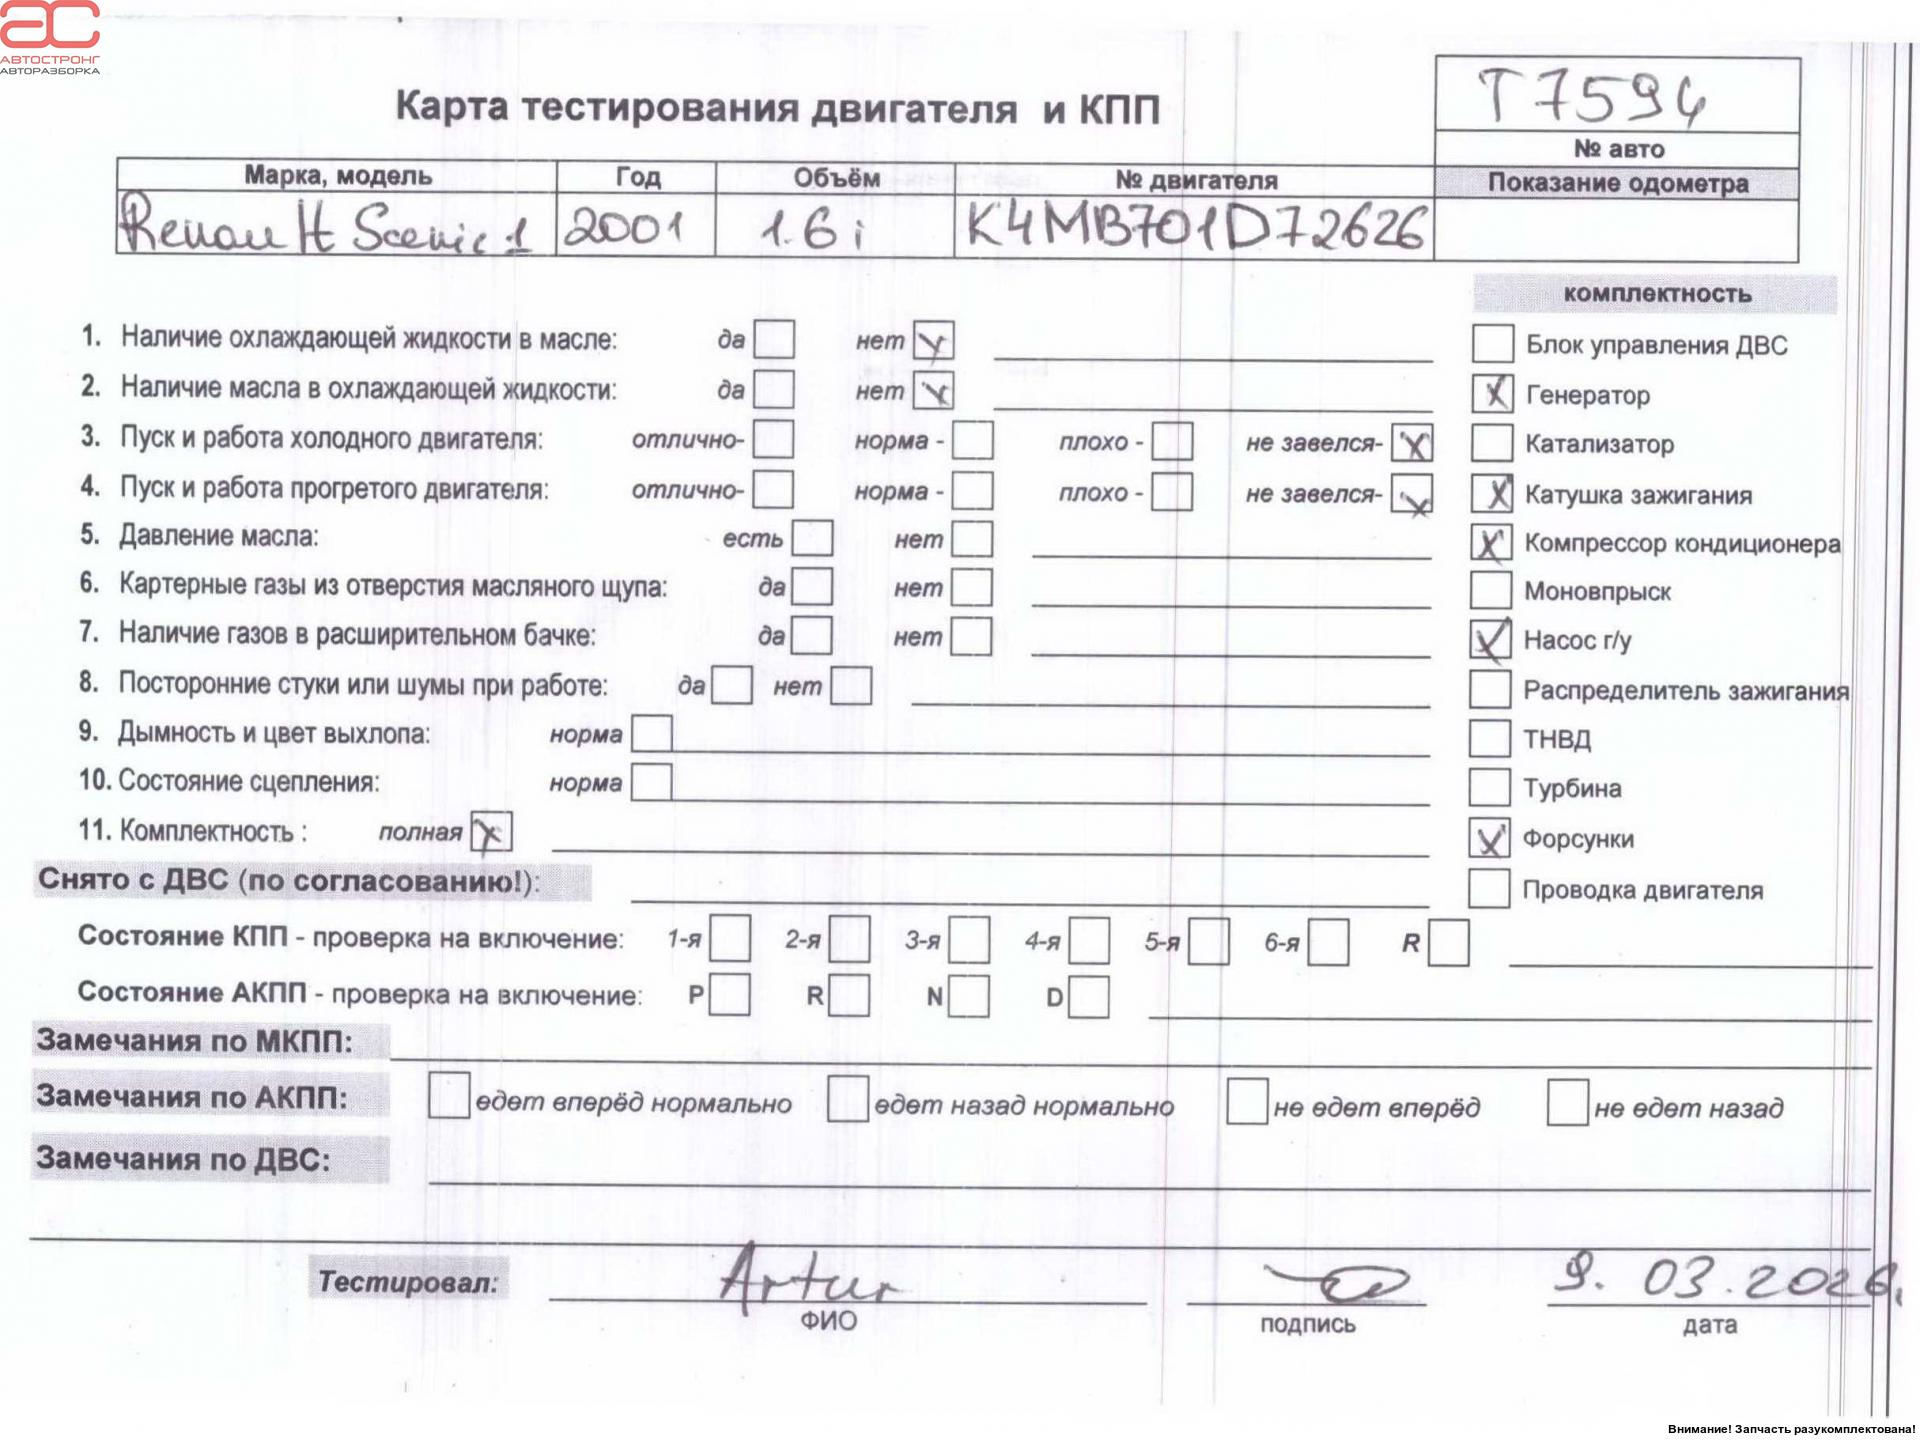 АС
АВТОСТРОНГ
АВТОРАЗБОРКА
T7594
№ авто
Карта тестирования двигателя и КПП
Марка, модель Год Объём № двигателя Показание одометра
Renault Scenic 1 2001 1.6i K4MB701D72626
комплектность
1. Наличие охлаждающей жидкости в масле: да нет
2. Наличие масла в охлаждающей жидкости: да нет
3. Пуск и работа холодного двигателя: отлично- норма - плохо - не завелся-
4. Пуск и работа прогретого двигателя: отлично- норма - плохо - не завелся-
5. Давление масла: есть нет
6. Картерные газы из отверстия масляного щупа: да нет
7. Наличие газов в расширительном бачке: да нет
8. Посторонние стуки или шумы при работе: да нет
9. Дымность и цвет выхлопа: норма
10. Состояние сцепления: норма
11. Комплектность : полная
Блок управления ДВС
Генератор
Катализатор
Катушка зажигания
Компрессор кондиционера
Моновпрыск
Насос г/у
Распределитель зажигания
ТНВД
Турбина
Форсунки
Проводка двигателя
Снято с ДВС (по согласованию!):
Состояние КПП - проверка на включение: 1-я 2-я 3-я 4-я 5-я 6-я R
Состояние АКПП - проверка на включение: P R N D
Замечания по МКПП:
Замечания по АКПП: едет вперёд нормально едет назад нормально не едет вперёд не едет назад
Замечания по ДВС:
Тестировал: Artur 9. 03. 2026.
ФИО подпись дата
Внимание! Запчасть разукомплектована!